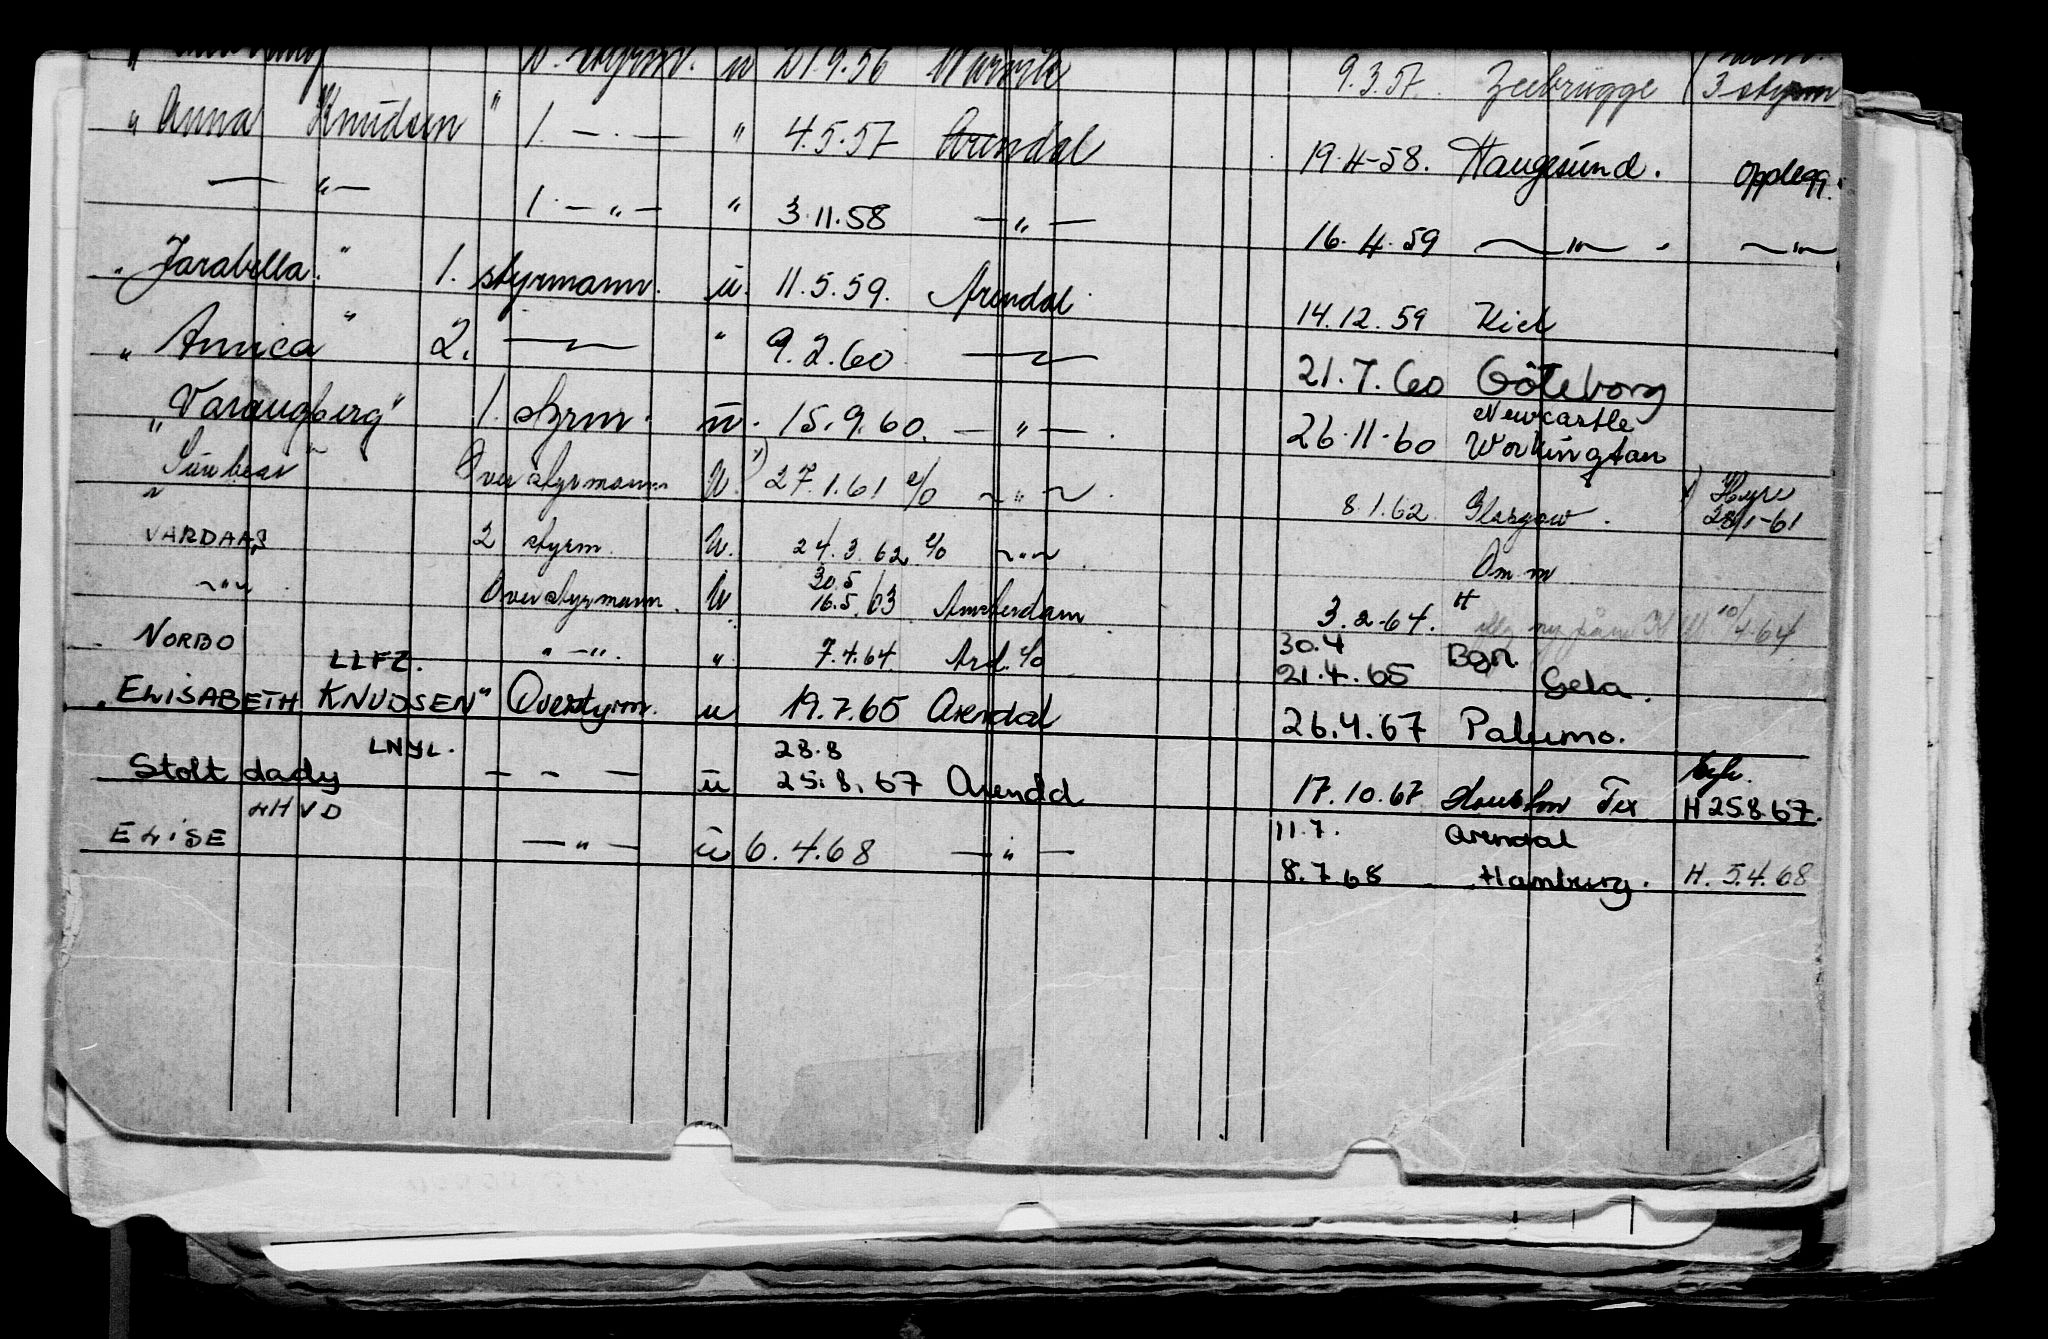 21.9.56 9.3.57. Zeebrügge 3 styrm
" Anna Knudsen " 1. — · — " 4.5.57 Arendal 19.4-58. Haugesund. Opplegg.
— " — 1. — " — " 3.11.58 — " — 16.4.59 — " — . — " —
" Jarabella " 1. styrmann. u. 11.5.59. Arendal 14.12.59 Kiel
" Annica " 2. — " — " 9.2.60 — " — 21.7.60 Göteborg
" Varangberg " 1. styrm. u. 15.9.60. — " — . 26.11.60 Newcastle Workington
" Sunbear " Overstyrmann U. x) 27.1.61 % — " — . 8.1.62 Glasgow . x) Hyre 28/1-61
VARDAAS 2 styrm. U. 24.3.62 % — " — Om m
— " — . Overstyrmann. U. 30.5 16.5.63 Amsterdam 3.2.64. H 10/4.64
NORBO " — " . " 7.4.64 Ard. % 30.4 21.4.65 Bgn. Gela.
LLFZ.
" ELISABETH KNUDSEN " Overstyrm. u 19.7.65 Arendal 26.4.67 Palermo.
LNYL.
Stolt dady — — — u 28.8 25.8.67 Arendal 17.10.67 Houston Tex H 25.8.67.
LHVD
ELISE — " — u 6.4.68 — " — 11.7. 8.7.68 Arendal Hamburg. H. 5.4.68